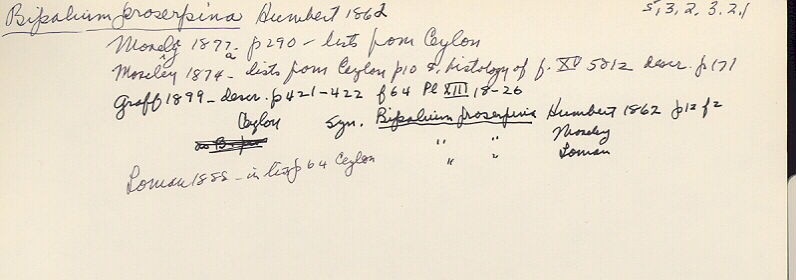 Bipalium proserpina Humbert 1862 5,3,2,3.2.1
Moseley 1877a p290 - lists from Ceylon
Moseley 1874 - lists from Ceylon p10 &. histology of p. XV descr. p171
Graff 1899 - descr. p421-422 f64 Pl XIII 18-26
Ceylon Syn. Bipalium proserpina Humbert 1862 p12 f2
" " Moseley
" " Loman
Loman 1888 - in list p64 Ceylon